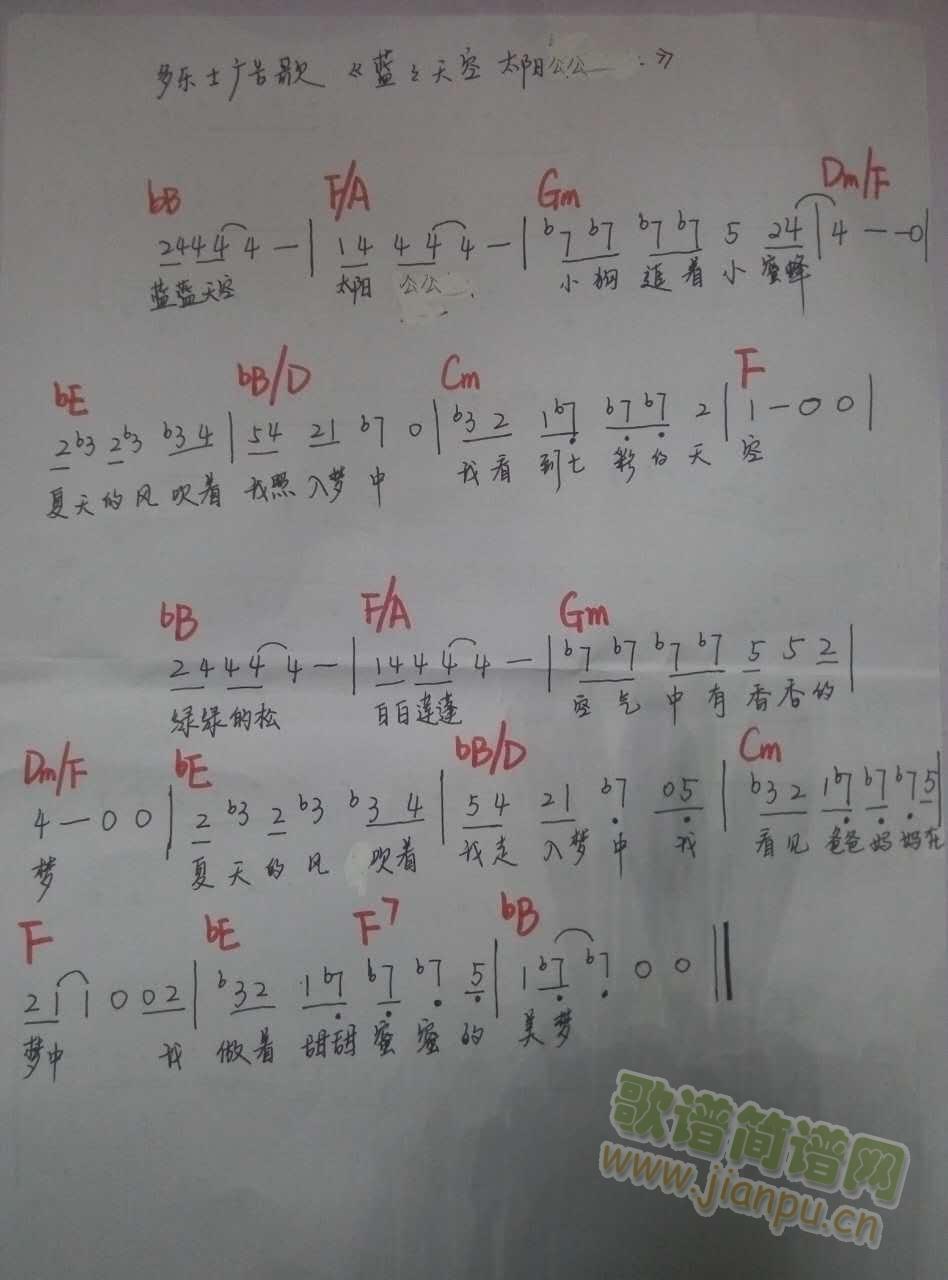 多乐士广告歌 《蓝々天空 太阳公公 》
bB F/A Gm Dm/F
2 4 4 4 4 — | 1 4 4 4 4 — | b7 b7 b7 b7 5 2 4 | 4 — — 0 |
蓝蓝天空 太阳 公公 小狗 追着小蜜蜂
bE bB/D Cm F
2 b3 2 b3 b3 4 | 5 4 2 1 b7 0 | b3 2 1 b7 b7 b7 2 | 1 — 0 0 |
夏天的风吹着 我照入梦中 我看到七彩的天 空
bB F/A Gm
2 4 4 4 4 — | 1 4 4 4 4 — | b7 b7 b7 b7 5 5 2 |
绿绿的松 白白莲蓬 空气中有香香的
Dm/F bE bB/D Cm
4 — 0 0 | 2 b3 2 b3 b3 4 | 5 4 2 1 b7 0 5 | b3 2 1 b7 b7 b7 5 |
梦 夏天的风 吹着 我走入梦中 我 看见爸爸妈妈在
F bE F7 bB
2 1 1 0 0 2 | b3 2 1 b7 b7 b7 5 | 1 b7 b7 0 0 ||
梦中 我 做着甜甜蜜蜜的 美梦
歌谱简谱网
www.jianpu.cn